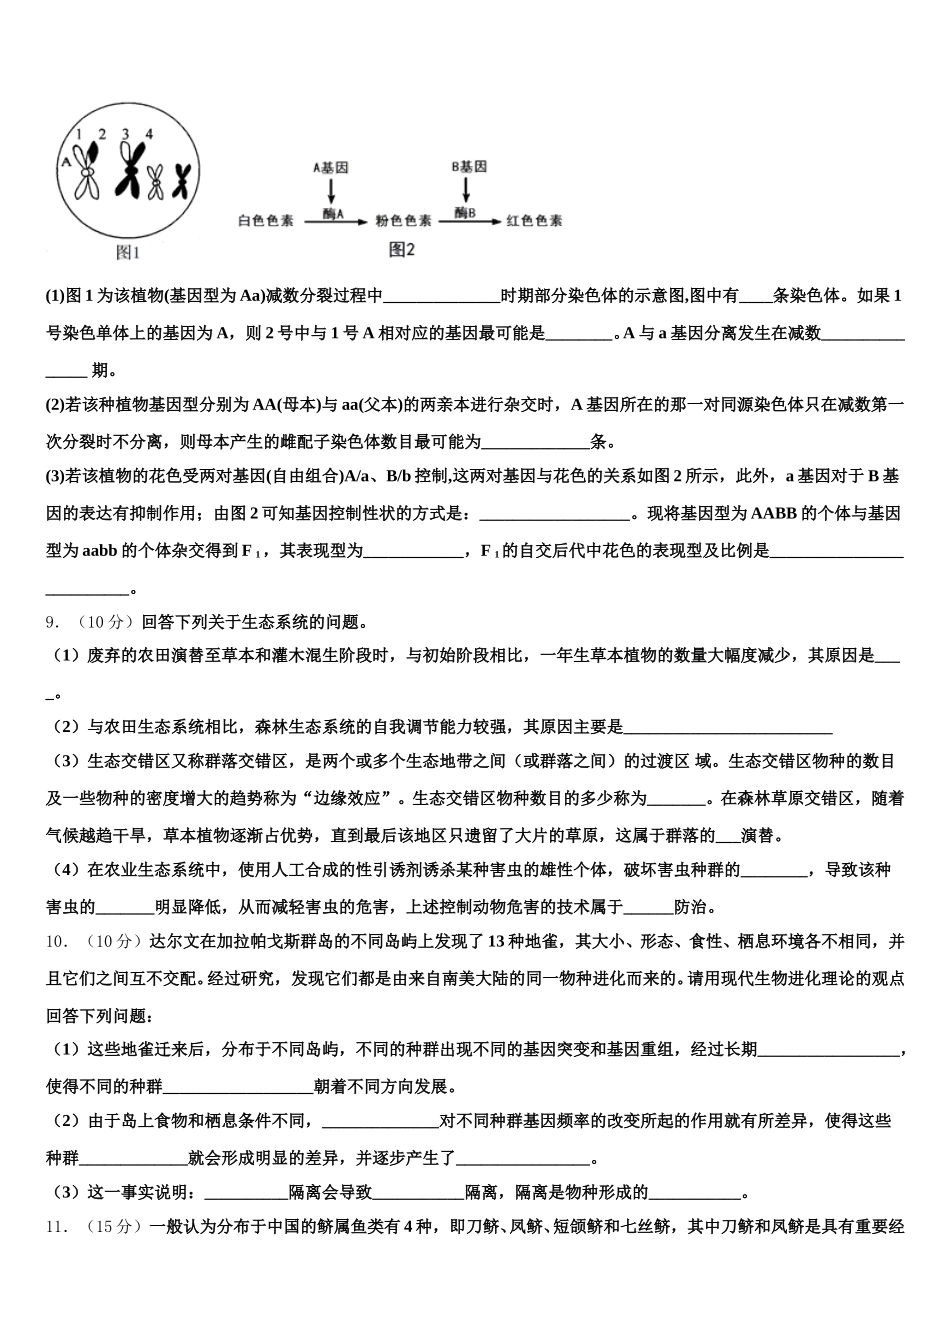 1 2 3 4
A
图1
A基因 B基因
白色色素 酶A 粉色色素 酶B 红色色素
图2
(1)图 1 为该植物(基因型为 Aa)减数分裂过程中______________时期部分染色体的示意图,图中有____条染色体。如果 1
号染色单体上的基因为 A，则 2 号中与 1 号 A 相对应的基因最可能是________。A 与 a 基因分离发生在减数__________
_____ 期。
(2)若该种植物基因型分别为 AA(母本)与 aa(父本)的两亲本进行杂交时，A 基因所在的那一对同源染色体只在减数第一
次分裂时不分离，则母本产生的雌配子染色体数目最可能为_____________条。
(3)若该植物的花色受两对基因(自由组合)A/a、B/b 控制,这两对基因与花色的关系如图 2 所示，此外，a 基因对于 B 基
因的表达有抑制作用；由图 2 可知基因控制性状的方式是：__________________。现将基因型为 AABB 的个体与基因
型为 aabb 的个体杂交得到 F 1，其表现型为____________，F 1 的自交后代中花色的表现型及比例是________________
__________。
9．（10 分）回答下列关于生态系统的问题。
（1）废弃的农田演替至草本和灌木混生阶段时，与初始阶段相比，一年生草本植物的数量大幅度减少，其原因是___
_。
（2）与农田生态系统相比，森林生态系统的自我调节能力较强，其原因主要是_________________________
（3）生态交错区又称群落交错区，是两个或多个生态地带之间（或群落之间）的过渡区 域。生态交错区物种的数目
及一些物种的密度增大的趋势称为“边缘效应”。生态交错区物种数目的多少称为_______。在森林草原交错区，随着
气候越趋干旱，草本植物逐渐占优势，直到最后该地区只遗留了大片的草原，这属于群落的___演替。
（4）在农业生态系统中，使用人工合成的性引诱剂诱杀某种害虫的雄性个体，破坏害虫种群的________，导致该种
害虫的_______明显降低，从而减轻害虫的危害，上述控制动物危害的技术属于______防治。
10．（10 分）达尔文在加拉帕戈斯群岛的不同岛屿上发现了 13 种地雀，其大小、形态、食性、栖息环境各不相同，并
且它们之间互不交配。经过研究，发现它们都是由来自南美大陆的同一物种进化而来的。请用现代生物进化理论的观点
回答下列问题：
（1）这些地雀迁来后，分布于不同岛屿，不同的种群出现不同的基因突变和基因重组，经过长期_________________，
使得不同的种群__________________朝着不同方向发展。
（2）由于岛上食物和栖息条件不同，______________对不同种群基因频率的改变所起的作用就有所差异，使得这些
种群_____________就会形成明显的差异，并逐步产生了________________。
（3）这一事实说明：__________隔离会导致___________隔离，隔离是物种形成的___________。
11．（15 分）一般认为分布于中国的鲚属鱼类有 4 种，即刀鲚、凤鲚、短颌鲚和七丝鲚，其中刀鲚和凤鲚是具有重要经